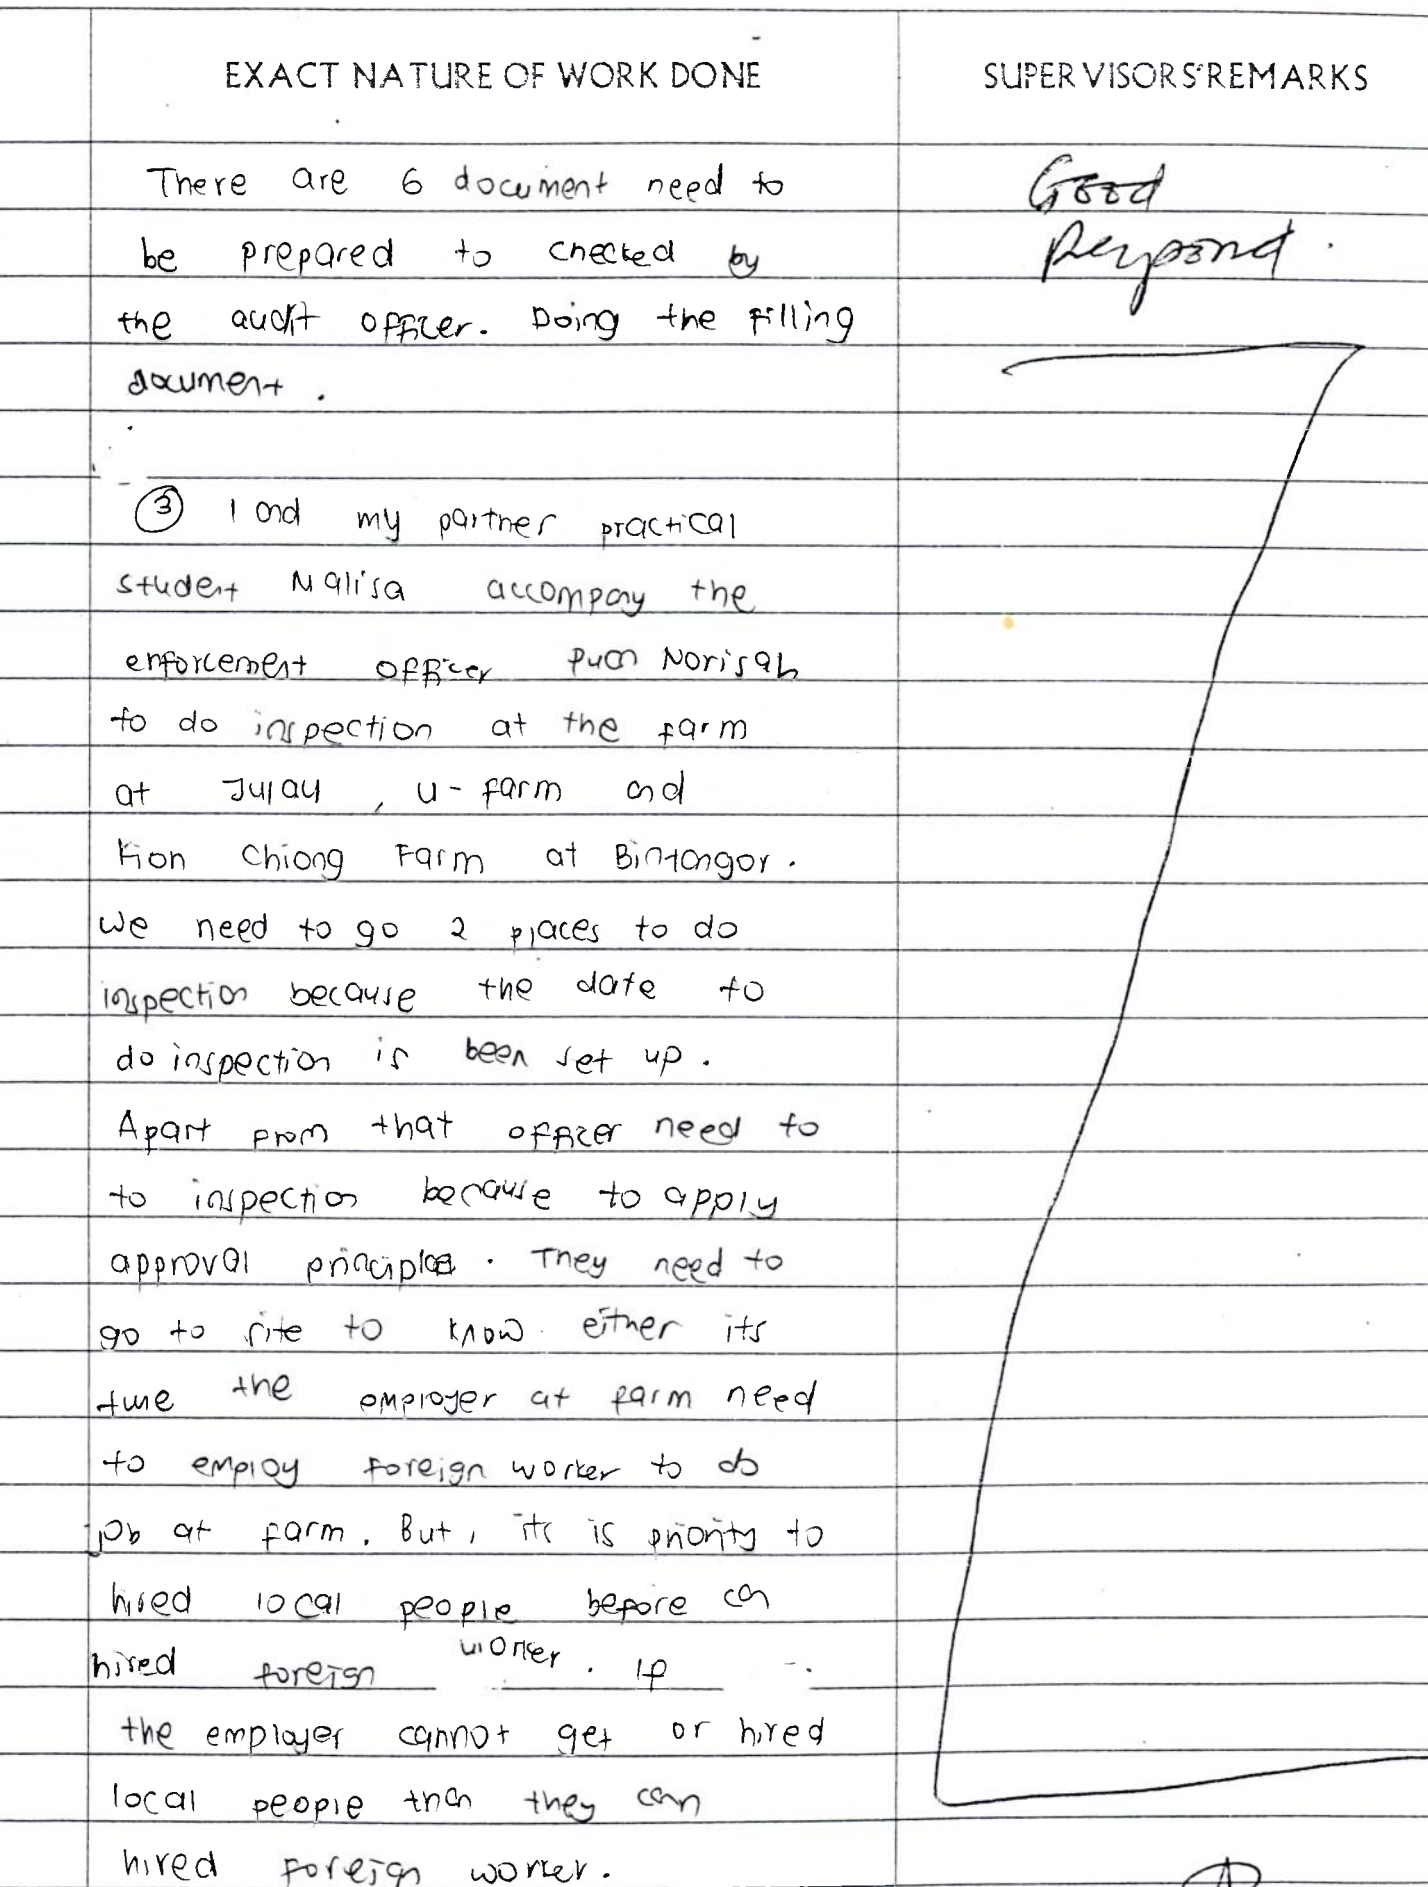 EXACT NATURE OF WORK DONE
SUPERVISORS' REMARKS
There are 6 document need to
be prepared to checked by
the audit officer. Doing the filling
document.
Good
Respond.
③ I and my partner practical
student Malisa accompany the
enforcement officer Puan Norisah
to do inspection at the farm
at Julau, U-farm and
Kion Chiong Farm at Bintangor.
We need to go 2 places to do
inspection because the date to
do inspection is been set up.
Apart from that officer need to
to inspection because to apply
approval principles. They need to
go to site to know either its
true the employer at farm need
to employ foreign worker to do
job at farm. But, its is priority to
hired local people before can
hired foreign worker. If
the employer cannot get or hired
local people than they can
hired foreign worker.